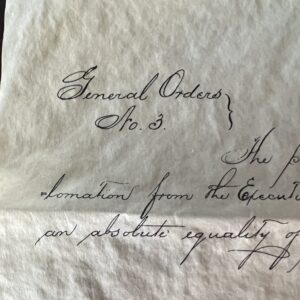 General Orders }
No. 3.
The p
=lamation from the Executi
an absolute equality of